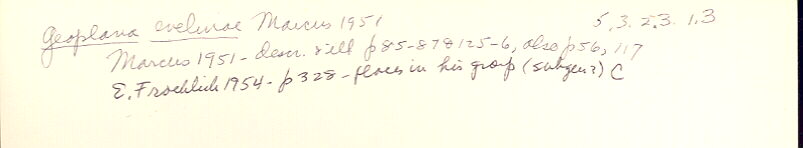 Geoplana evelinae Marcus 1951 5.3.2.3.1.3
Marcus 1951 - descr. & ill p85-87 & 125-6, also p56, 117
E. Froehlich 1954 - p328 - places in his group (subgen?) C